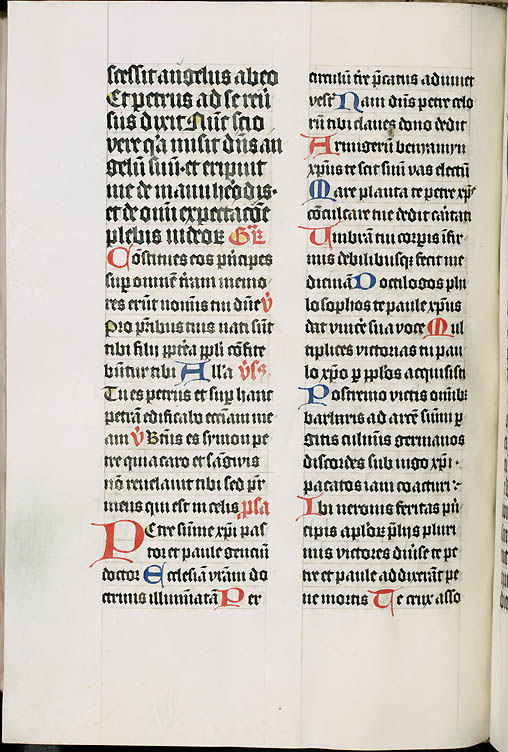 scessit angelus ab eo
Et petrus ad se reū
sus dixit Nūc scio
vere q̄a misit dn̄s an
gelū suū · et eripuit
me de manu hēodis ·
et de om̄i expectacōe
plebis iudeor
Cōstitues eos p̄ncipes
sup omnē t̄ram memo
res erūt nomīs tui dn̄e v̄
Pro p̄ribus tuis nati sūt
tibi filij pp̄t̄ea pp̄li cōfite
būntur tibi All'a v̄s
Tu es petrus et sup̄ hanc
petrā edificabo ecc̄am me
am v̄ Bt̄us es symon pe
tre quia caro et sāgwis
nō reuelauit tibi sed p̄r
meus qui est in celis psa
Petre sūme xp̄i pas
tor et paule gencīū
doctor Ecclesiā vr̄am do
ctrinis illumīatā Per
circulū t̄re p̄catus adiuuet
vest̄ Nam dn̄s petre celo
rū tibi claues dono dedit
Armigerū beniamyn
xp̄us te scit suū vas electū
Mare planta te petre xp̄s
cōculcare tue dedit cūtati
Umbrā tui corpis īfir
mis debilibusq; fecit me
dicinā Doctilogos phi
losophos te paule xp̄us
dat vīcē sua voce Mul
tiplices victorias tu pau
lo xp̄o p pp̄los acquisisti
Postremo victis omīb;
barbaris ad arcē sūmi p
gitis culmīs germanos
discordes sub iugo xp̄i ·
pacatos iam coacturi ·
Ibi neronis feritas p̄n
cipis aplōr p̄liis pluri
mis victores diūse te pe
tre et paule addixerāt pe
ne mortis Te crux asso